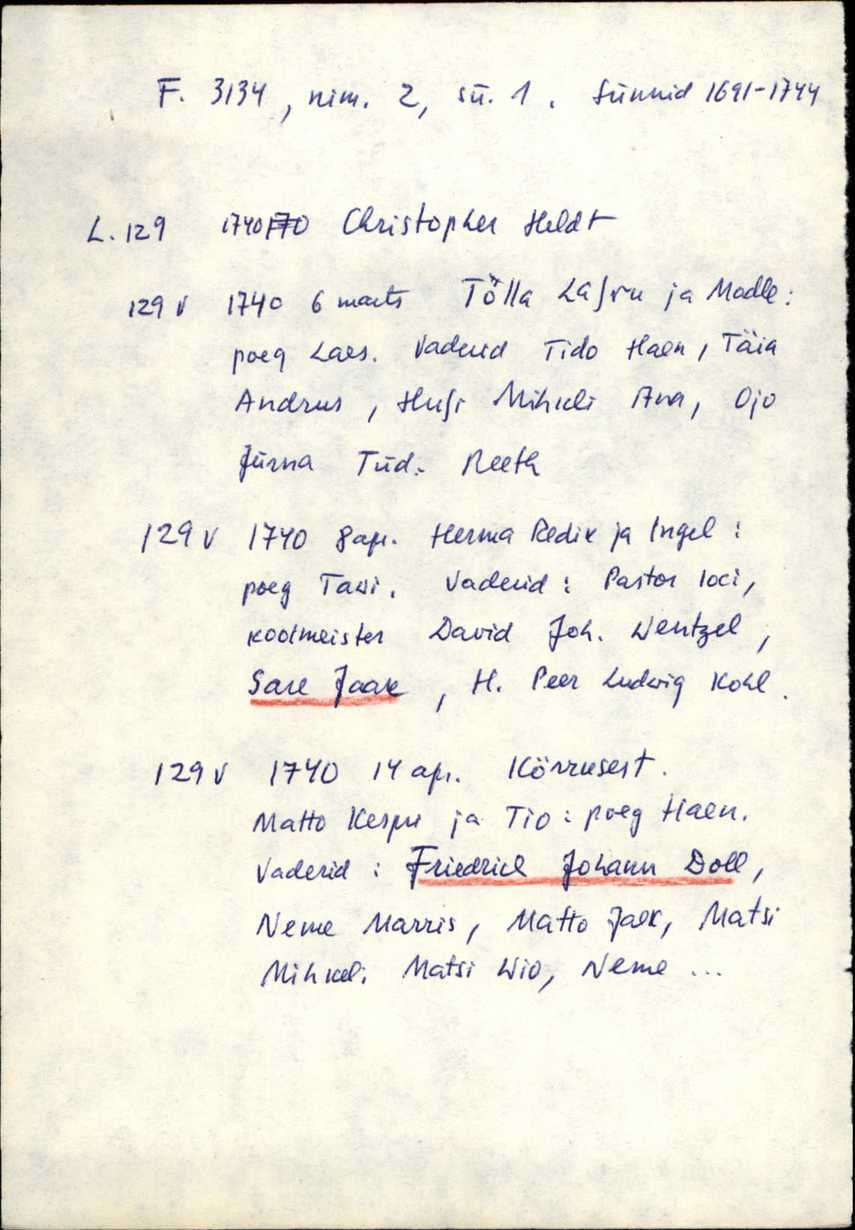 F. 3134, nim. 2, sü. 1. Sünnid 1691-1744
L. 129 1740 Christopher Heldt
129 v 1740 6 marts Tõlla Laſsu ja Madle:
poeg Laes. Vaderid Tido Haen, Täia
Andrus, Huſi Mihkli Ana, Ojo
Jürna Tüd. Reeth
129 v 1740 8 apr. Herma Redik ja Ingel:
poeg Tawi. Vaderid: Pastor loci,
koolmeister David Joh. Wentzel,
Sare Jaak, H. Peer Ludwig Kohl.
129 v 1740 14 apr. Kõrrusest.
Matto Kespri ja Tio: poeg Haen.
Vaderid: Friedrich Johann Doll,
Neme Marris, Matto Jaek, Matsi
Mihkel. Matsi Wio, Neme ...